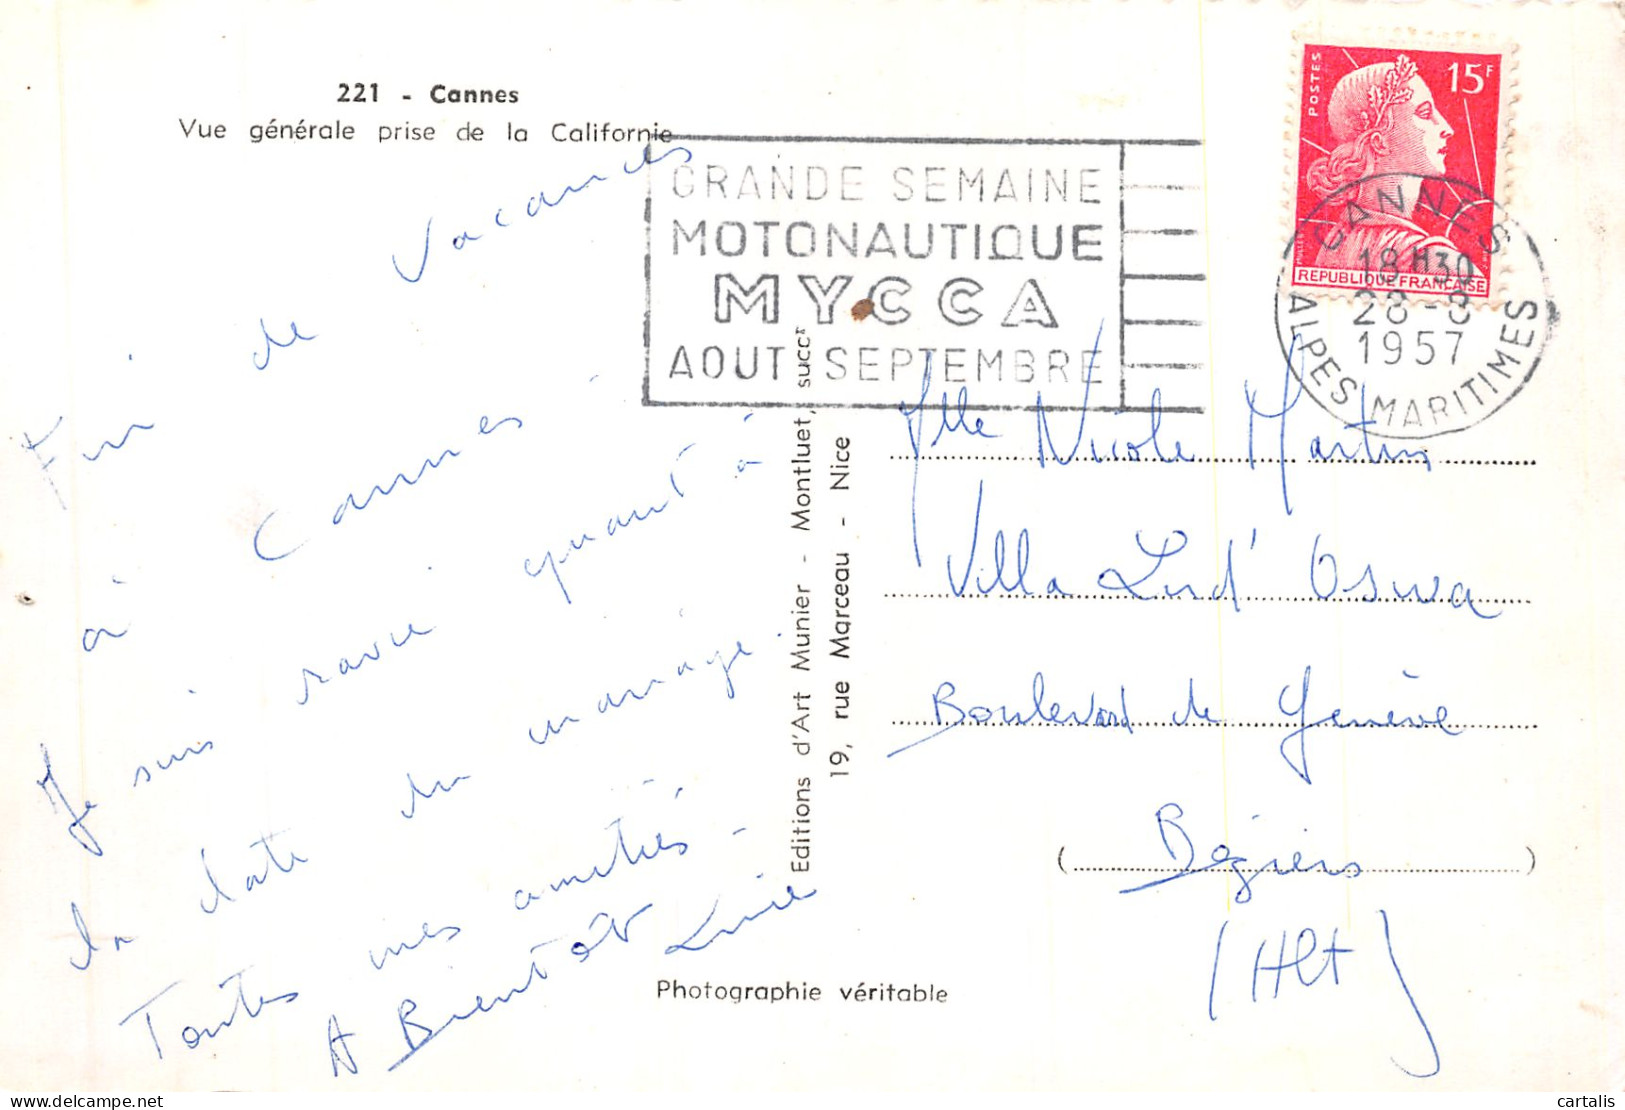 221 - Cannes
Vue générale prise de la Californie
GRANDE SEMAINE
MOTONAUTIQUE
MYCCA
AOUT SEPTEMBRE
POSTES
15F
REPUBLIQUE FRANCAISE
CANNES
18H30
28-8
1957
ALPES MARITIMES
Fin de Vacances
à Cannes
Je suis ravie quant à
la date du mariage.
Toutes mes amitiés -
A Bientôt
Editions d'Art Munier - Montluet, succr
19, rue Marceau - Nice
Mlle Nicole Martin
Villa
Boulevard de Genève
( Béziers )
(Hlt)
Photographie véritable
cartalis
delcampe.net